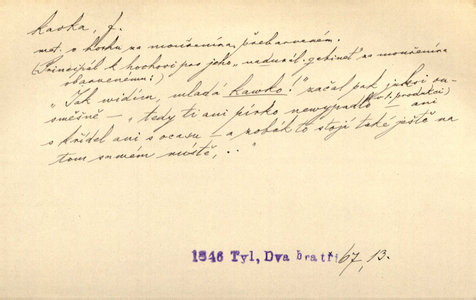 kavka, f.
met. o hochu za mouřenína přebarveném.
(Principál k hochovi pro jeho „naturál. gabinet“ za mouřenína
obarvenému:)
„Jak widím, mladá kawko!“ začal pak jakoby
směšně – „tedy ti ani pírko newypadlo – ani
(v t. produkci)
s křídel ani s ocasu – a zobák to stojí také ještě na
tom samém místě, . . “
1846 Tyl, Dva bratři 67, 13.